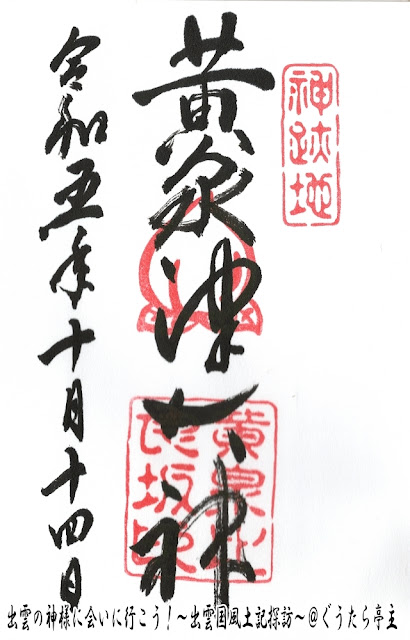 神跡地
黄泉津大神
黄泉比
良坂
令和五年十月十四日
出雲の神様に会いに行こう！～出雲国風土記探訪～＠ぐうたら亭主